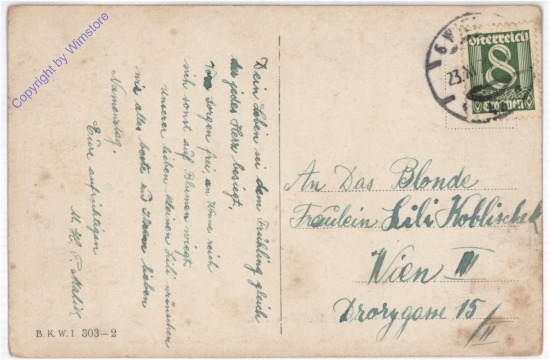 Copyright by Wimstore
Dein Leben sei dem Frühling gleich
das jedes Herz besiegt,
von Sorgen frei, an Wonne reich
sich sonst auf Blumen wiegt
unserer lieben kleinen Lili wünschen
wir alles beste zu Ihrem lieben
Namenstag.
Eure aufrichtigen
M. H. F.
B.K.W.I. 303-2
WIEN
23.
Österreich
8
Groschen
An Das Blonde
Fräulein Lili Koblischek
Wien III
Drorygasse 15/
II